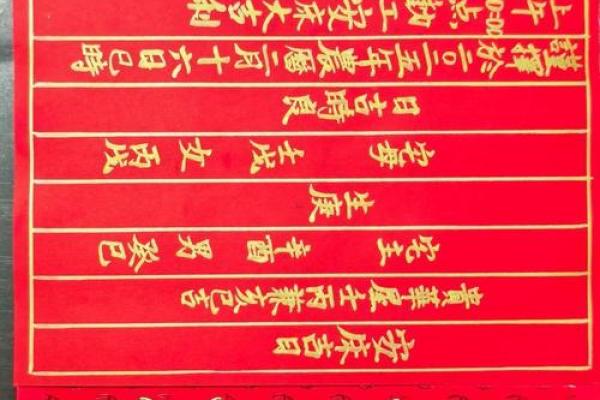 安床吉日
貴華屋壬丙兼亥巳吉
宅主 辛酉 男 癸巳
生庚
宅母 壬戌 女 丙戌
日吉時良
謹擇於二〇二五年農曆二月十六日巳時
上午 點動工安床大吉利